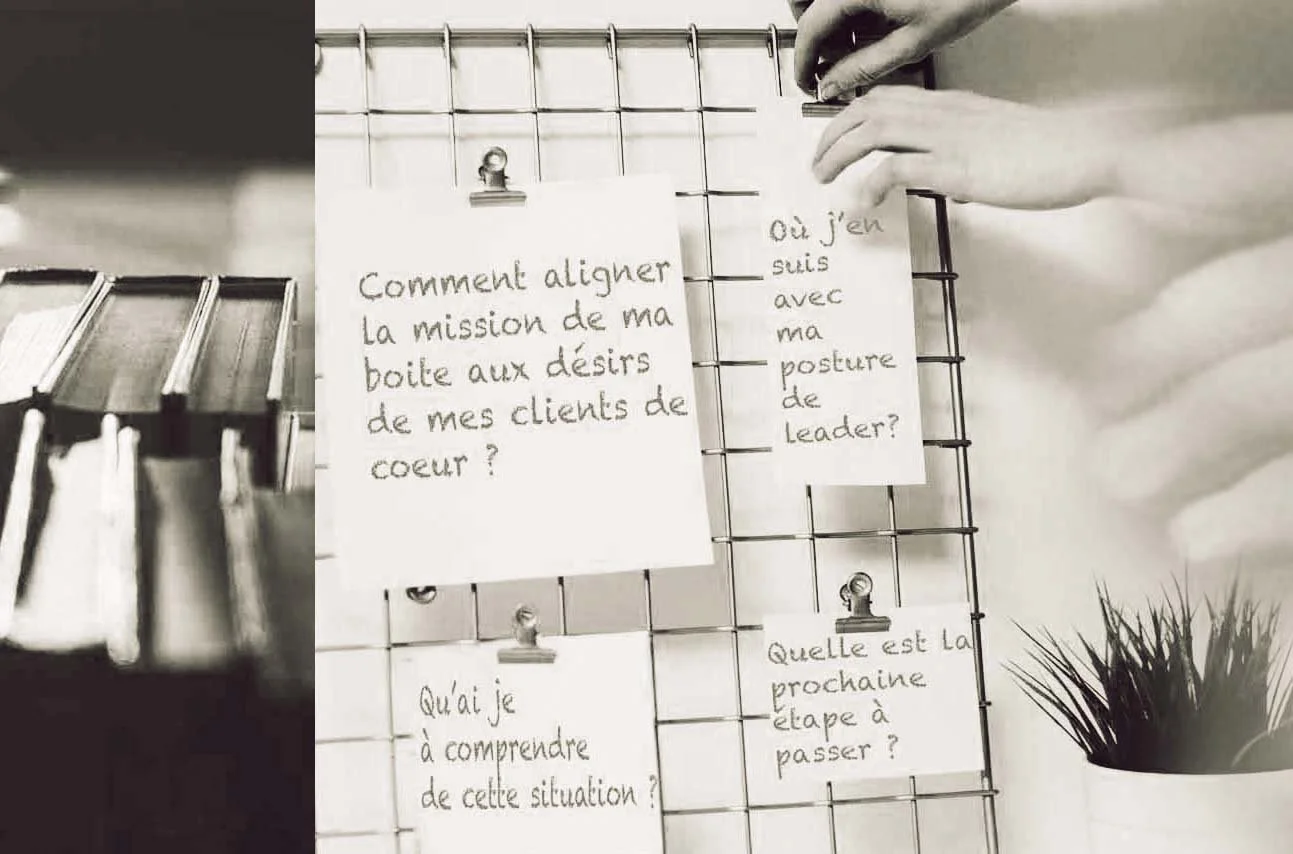 Comment aligner
la mission de ma
boite aux désirs
de mes clients de
coeur ?
Où j'en
suis
avec
ma
posture
de
leader?
Qu'ai je
à comprendre
de cette situation ?
Quelle est la
prochaine
étape à
passer ?